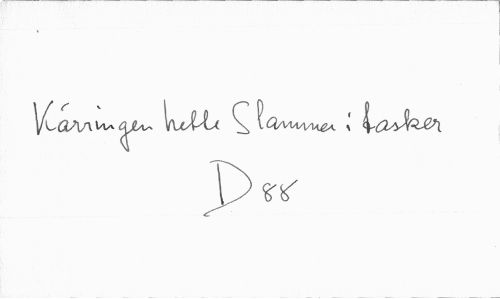 Kärringen hette Slammer i tasker
D 88